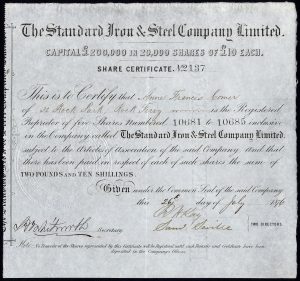 The Standard Iron & Steel Company Limited.
CAPITAL £200,000 IN 20,000 SHARES OF £10 EACH.
SHARE CERTIFICATE. No 2137
This is to Certify that Anne Frances
of Rock is the Registered
Proprietor of five Shares Numbered 10681 @ 10685 inclusive
in the Company called The Standard Iron & Steel Company Limited.
subject to the Articles of Association of the said Company and that
there has been paid in respect of each of such shares the sum of
TWO POUNDS AND TEN SHILLINGS.
Given under the Common Seal of the said Company
this 26th day of July 1876
Secretary
TWO DIRECTORS.
Note. No Transfer of the Shares represented by this Certificate will be Registered until such Transfer and Certificate have been
deposited in the Company's Offices.